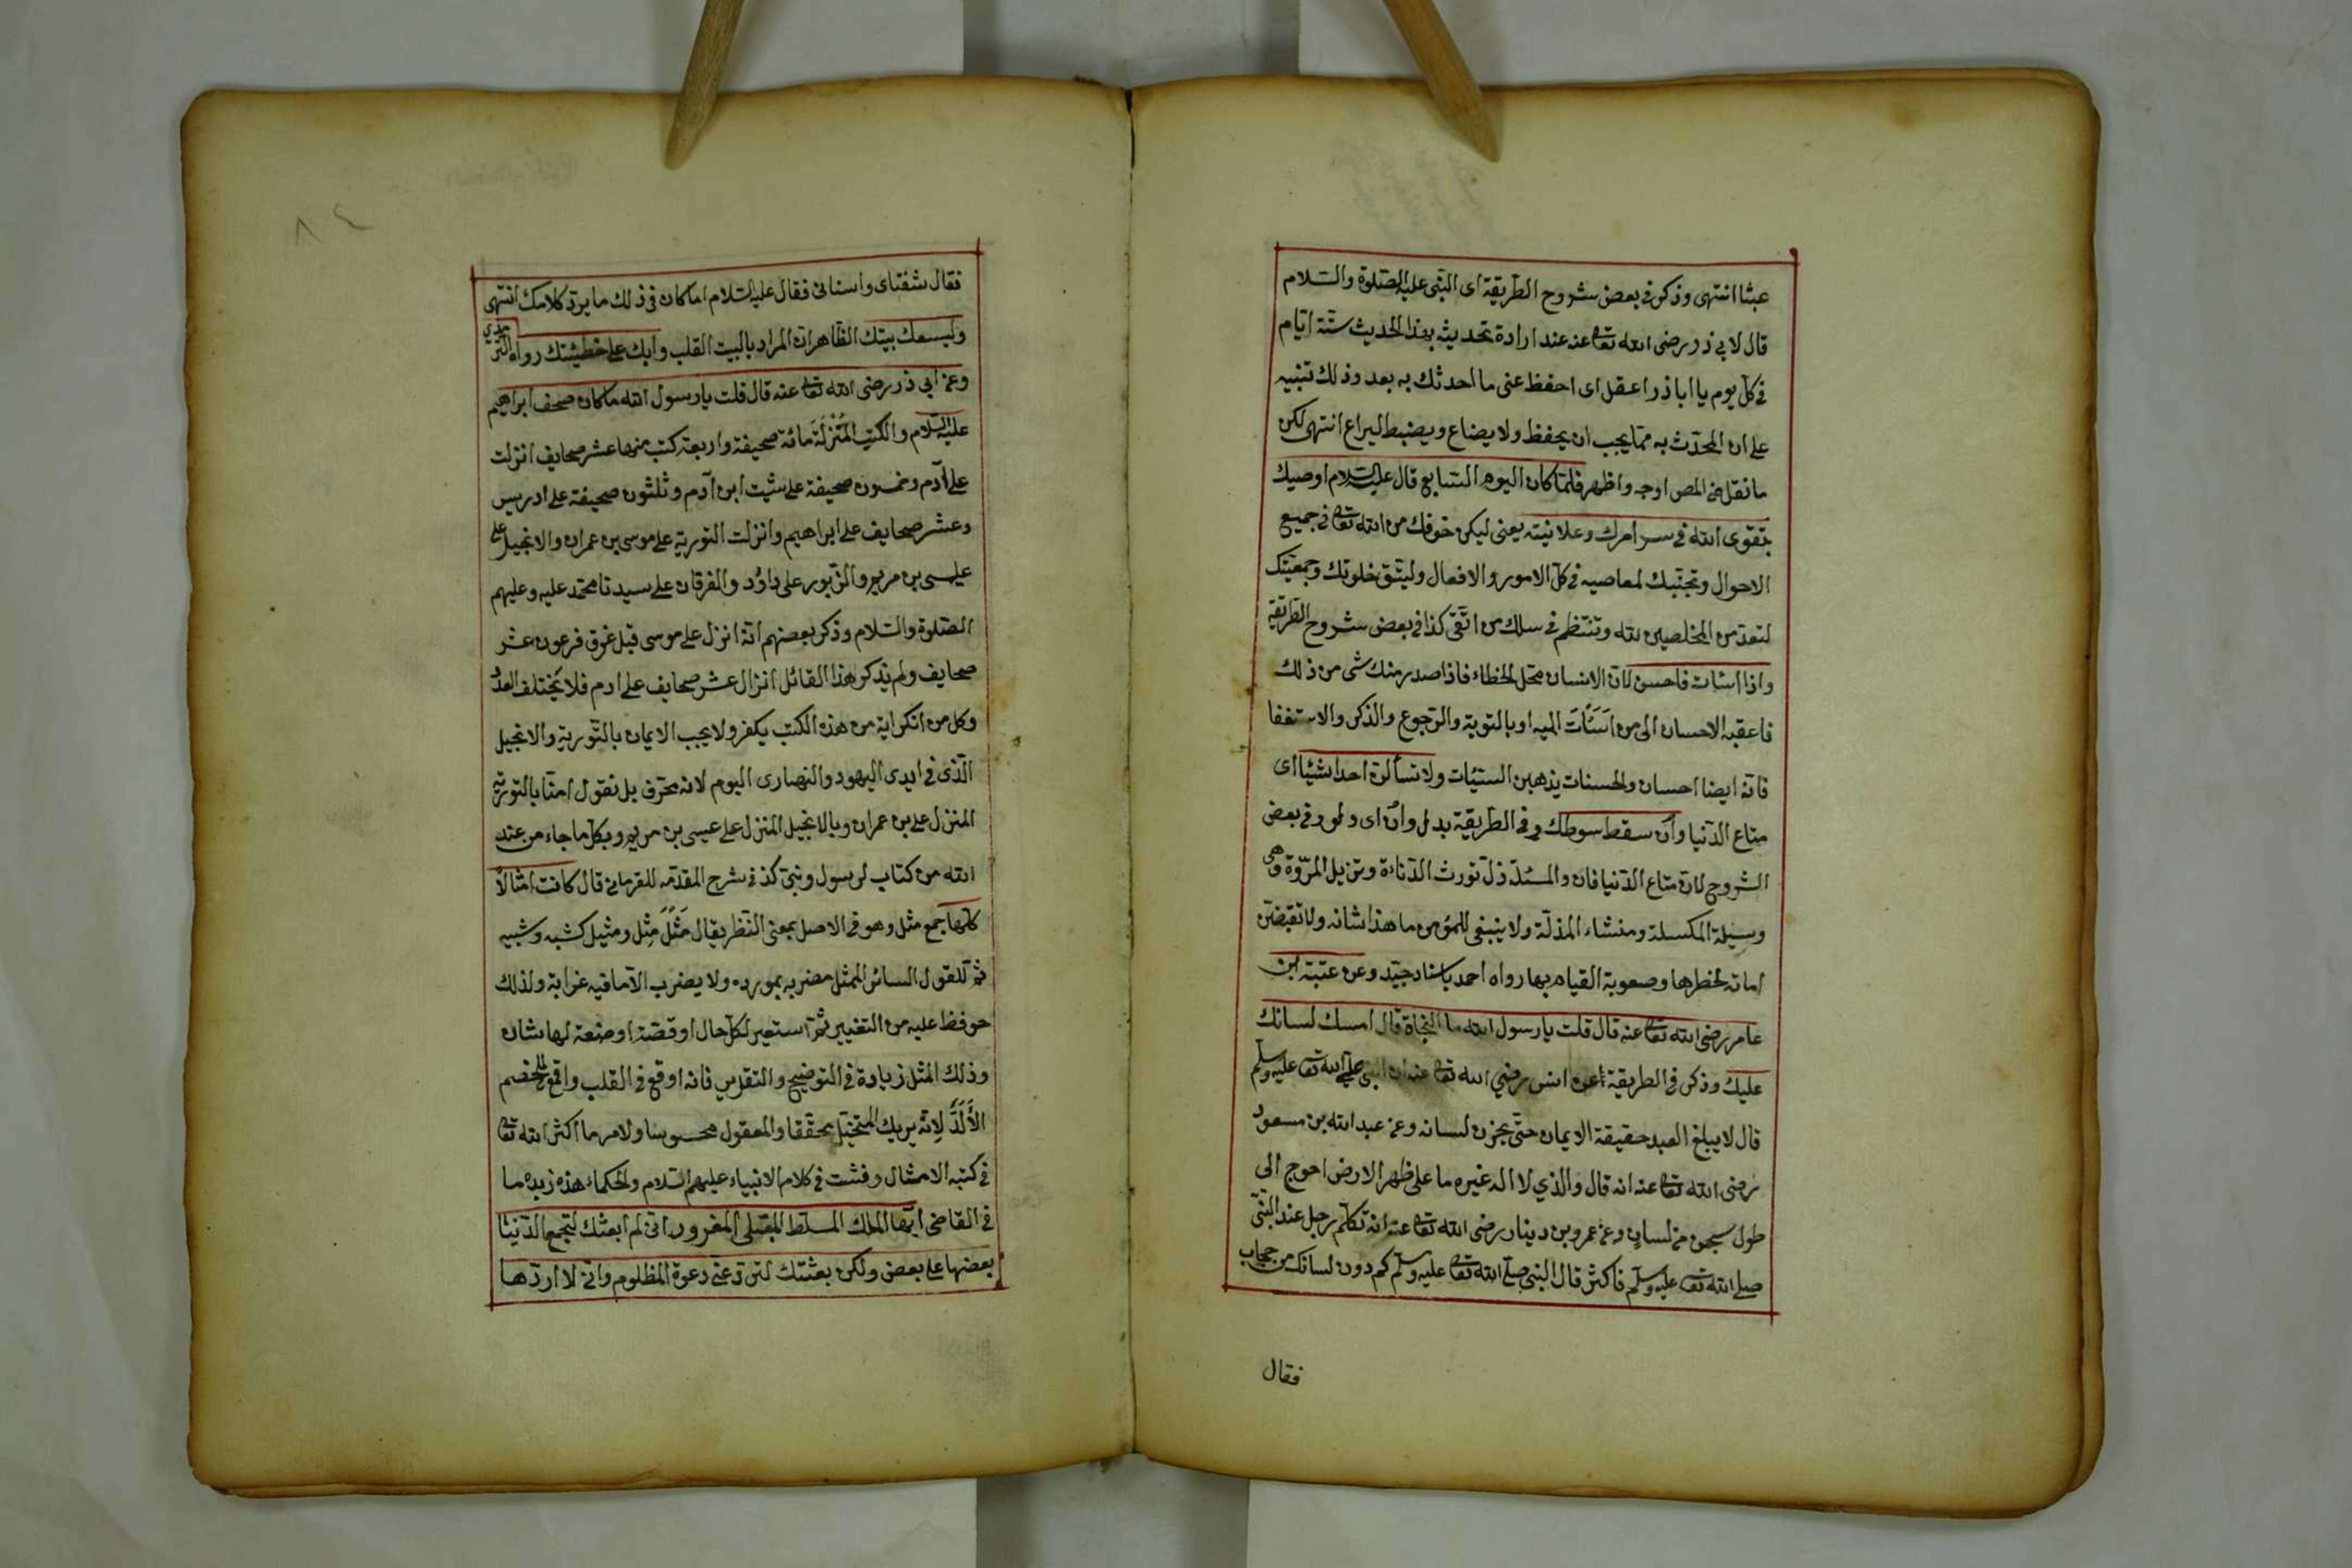 عبثا انتهى وذكر فى بعض شروح الطريقة اى النبى عليه الصلوة والسلام
قال لابى ذر رضى الله تعا عنه عند ارادة تحديثه بهذا الحديث ستة ايام
فى كل يوم يا اباذر اعقل اى احفظ عنى ما احدثك به بعد وذلك تنبيه
على ان المحدّث به مما يجب ان يحفظ ولا يضاع ويضبط اليراع انتهى لكن
ما نقل المص اوجه واظهر فلمّا كان اليوم السّابع قال عليه السلام اوصيك
بتقوى الله فى سر امرك وعلانيته يعنى ليكن خوفك من الله تعا فى جميع
الاحوال وتجنبك لمعاصيه فى كل الامور والافعال وليتّق خلوتك وجمعيتك
لتعدّ من المخلصين لله وتنتظم فى سلك من اتّقى كذا فى بعض شروح الطريقة
واذا اسأت فاحسن لان الانسان محل الخطاء فاذا صدر منك شى من ذلك
فاعقبه الاحسان الى من اسأت اليه او بالتوبة والرّجوع والذكر والاستغفا
فانه ايضا احسان والحسنات يذهبن السيّئات ولا تسألن احدا شيئا اى
متاع الدّنيا وان سقط سوطك وفى الطّريقة بدل وان اى ولو وفى بعض
الشروح لان متاع الدّنيا فان والسئد ذل تورث الدّناءة وتزيل المرّوة وهى
وسيلة المكسلة ومنشاء المذلّة ولا ينبغى للمؤمن ما هذا شانه ولا تقبضنّ
امانة لخطرها وصعوبة القيام بها رواه احمد باسناد جيّد وعن عتبة ابن
عامر رضى الله تعا عنه قال قلت يا رسول الله ما النّجاة قال امسك لسانك
عليك وذكر فى الطريقة عن انس رضي الله تعا عنه ان النبى صلى الله تعا عليه وسلم
قال لا يبلغ العبد حقيقة الايمان حتّى يخزن لسانه وعن عبدالله بن مسعود
رضى الله تعا عنه انه قال والذي لا اله غيره ما على ظهر الارض احوج الى
طول سجن من لسان وعن عمرو بن دينار رضى الله تعا عنه انه تكلّم رجل عند النّبىّ
صلى الله تعا عليه وسلم فاكثر قال النبى صلى الله تعا عليه وسلم كم دون لسانك من حجاب
فقال
٨٤
فقال شفتاى واسنانى فقال عليه السّلام اما كان فى ذلك ما يردّ كلامك انتهى
وليسعك بيتك الظّاهر ان المراد بالبيت القلب وابك على خطيئتك رواه الترمذى
وعن ابي ذر رضى الله تعا عنه قال قلت يا رسول الله ما كان صحف ابراهيم
عليه السّلام والكتب المُنْزَلَة مائة صحيفة واربعة كتب منها عشر صحايف انزلت
على آدم وخمسون صحيفة على شيت ابن آدم وثلثون صحيفة على ادريس
وعشر صحايف على ابراهيم وانزلت التورية على موسى بن عمران والانجيل على
عيسى بن مريم والزّبور على داوُد والفرقان على سيدنا محمّد عليه وعليهم
الصّلوة والسّلام وذكر بعضهم انه انزل على موسى قبل غرق فرعون عشر
صحايف ولم يذكر هذا القائل انزال عشر صحايف على ادم فلا يختلف العدد
وكل من انكر اية من هذه الكتب يكفر ولا يجب الايمان بالتّورية والانجيل
الّذى فى ايدى اليهود والنصارى اليوم لانه محرّف بل نقول امنّا بالتورية
المنزل على بن عمران وبالانجيل المنزل على عيسى بن مريم وبكل ما جاء من عند
الله من كتاب لرسول ونبىّ كذ فى شرح المقدّمه للقرمانى قال كانت امثالاً
كلّها جمع مثل وهو فى الاصل بمعنى النّظر يقال مَثَل مِثْل ومثيل كشبه وشبيه
ثم للقول السائر الممثل مضربه بمورده ولا يضرب الا ما فيه غرابة ولذلك
حوفظ عليه من التغيير ثمّ استعير لكل حال او قصّة او صنعة لها شان
وذلك المثل زيادة فى التوضيح والتقرير فانه اوقع فى القلب واقمع للخصم
الأَلَدّ لانّه يريك المتخيّل محقّقا والمعقول محسوسا ولامر ما اكثر الله تعا
فى كتبه الامثال وفشت فى كلام الانبياء عليهم السّلام والحكماء هذه زبدة ما
فى القاضى ايّها الملك المسلّط المبتلى المغرور انى لم ابعثك لتجمع الدّنيا
بعضها على بعض ولكن بعثتك لتردّ عنى دعوة المظلوم وانى لا اردّها